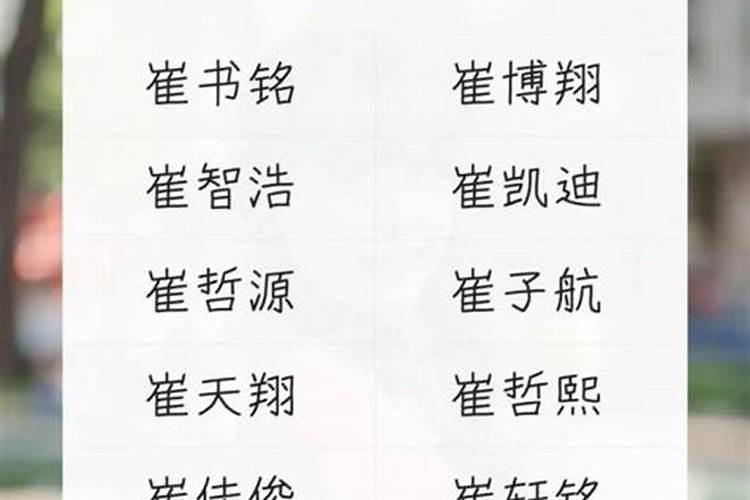 崔书铭 崔博翔
崔智浩 崔凯迪
崔哲源 崔子航
崔天翔 崔哲熙
崔佳俊 崔轩铭